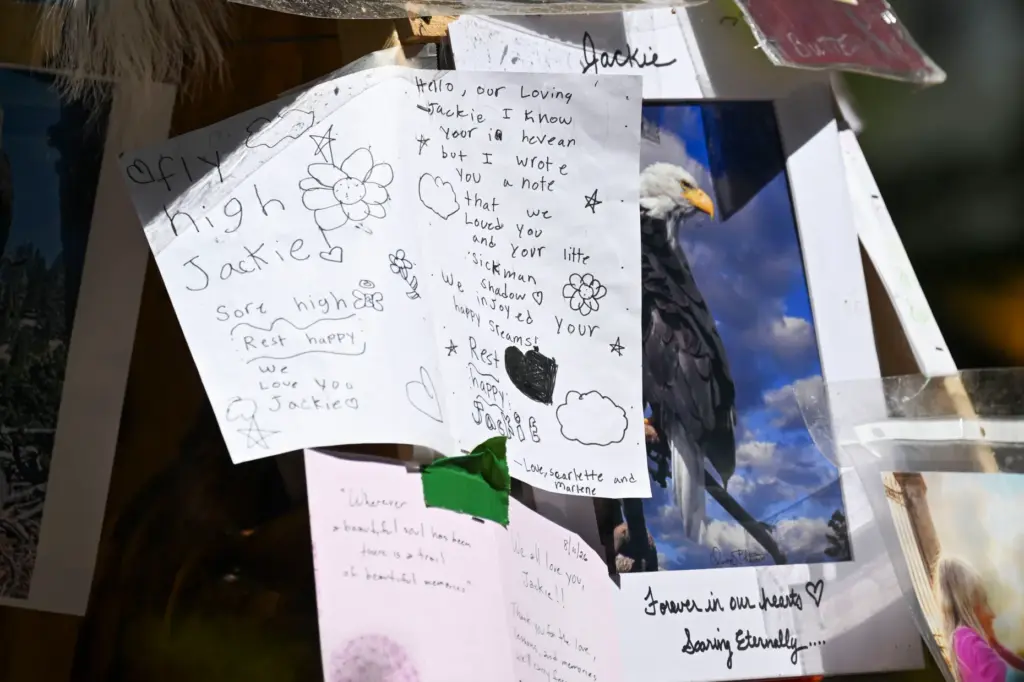 Jackie
fly
high
Jackie
Sore high
Rest happy
we
Love you
Jackie
Hello, our Loving
Jackie I Know
your in hevean
but I wrote
you a note
that we
Loved you
and your litte
Sickman
shadow
We injoyed your
happy screams!
Rest
happy
Jackie
-Love, scarlette and
marlene
"Wherever
a beautiful soul has been
there is a trail
of beautiful memories"
We all love you,
Jackie!!
Thank you for the love,
lessons, and memories
Forever in our hearts
Soaring Eternally....